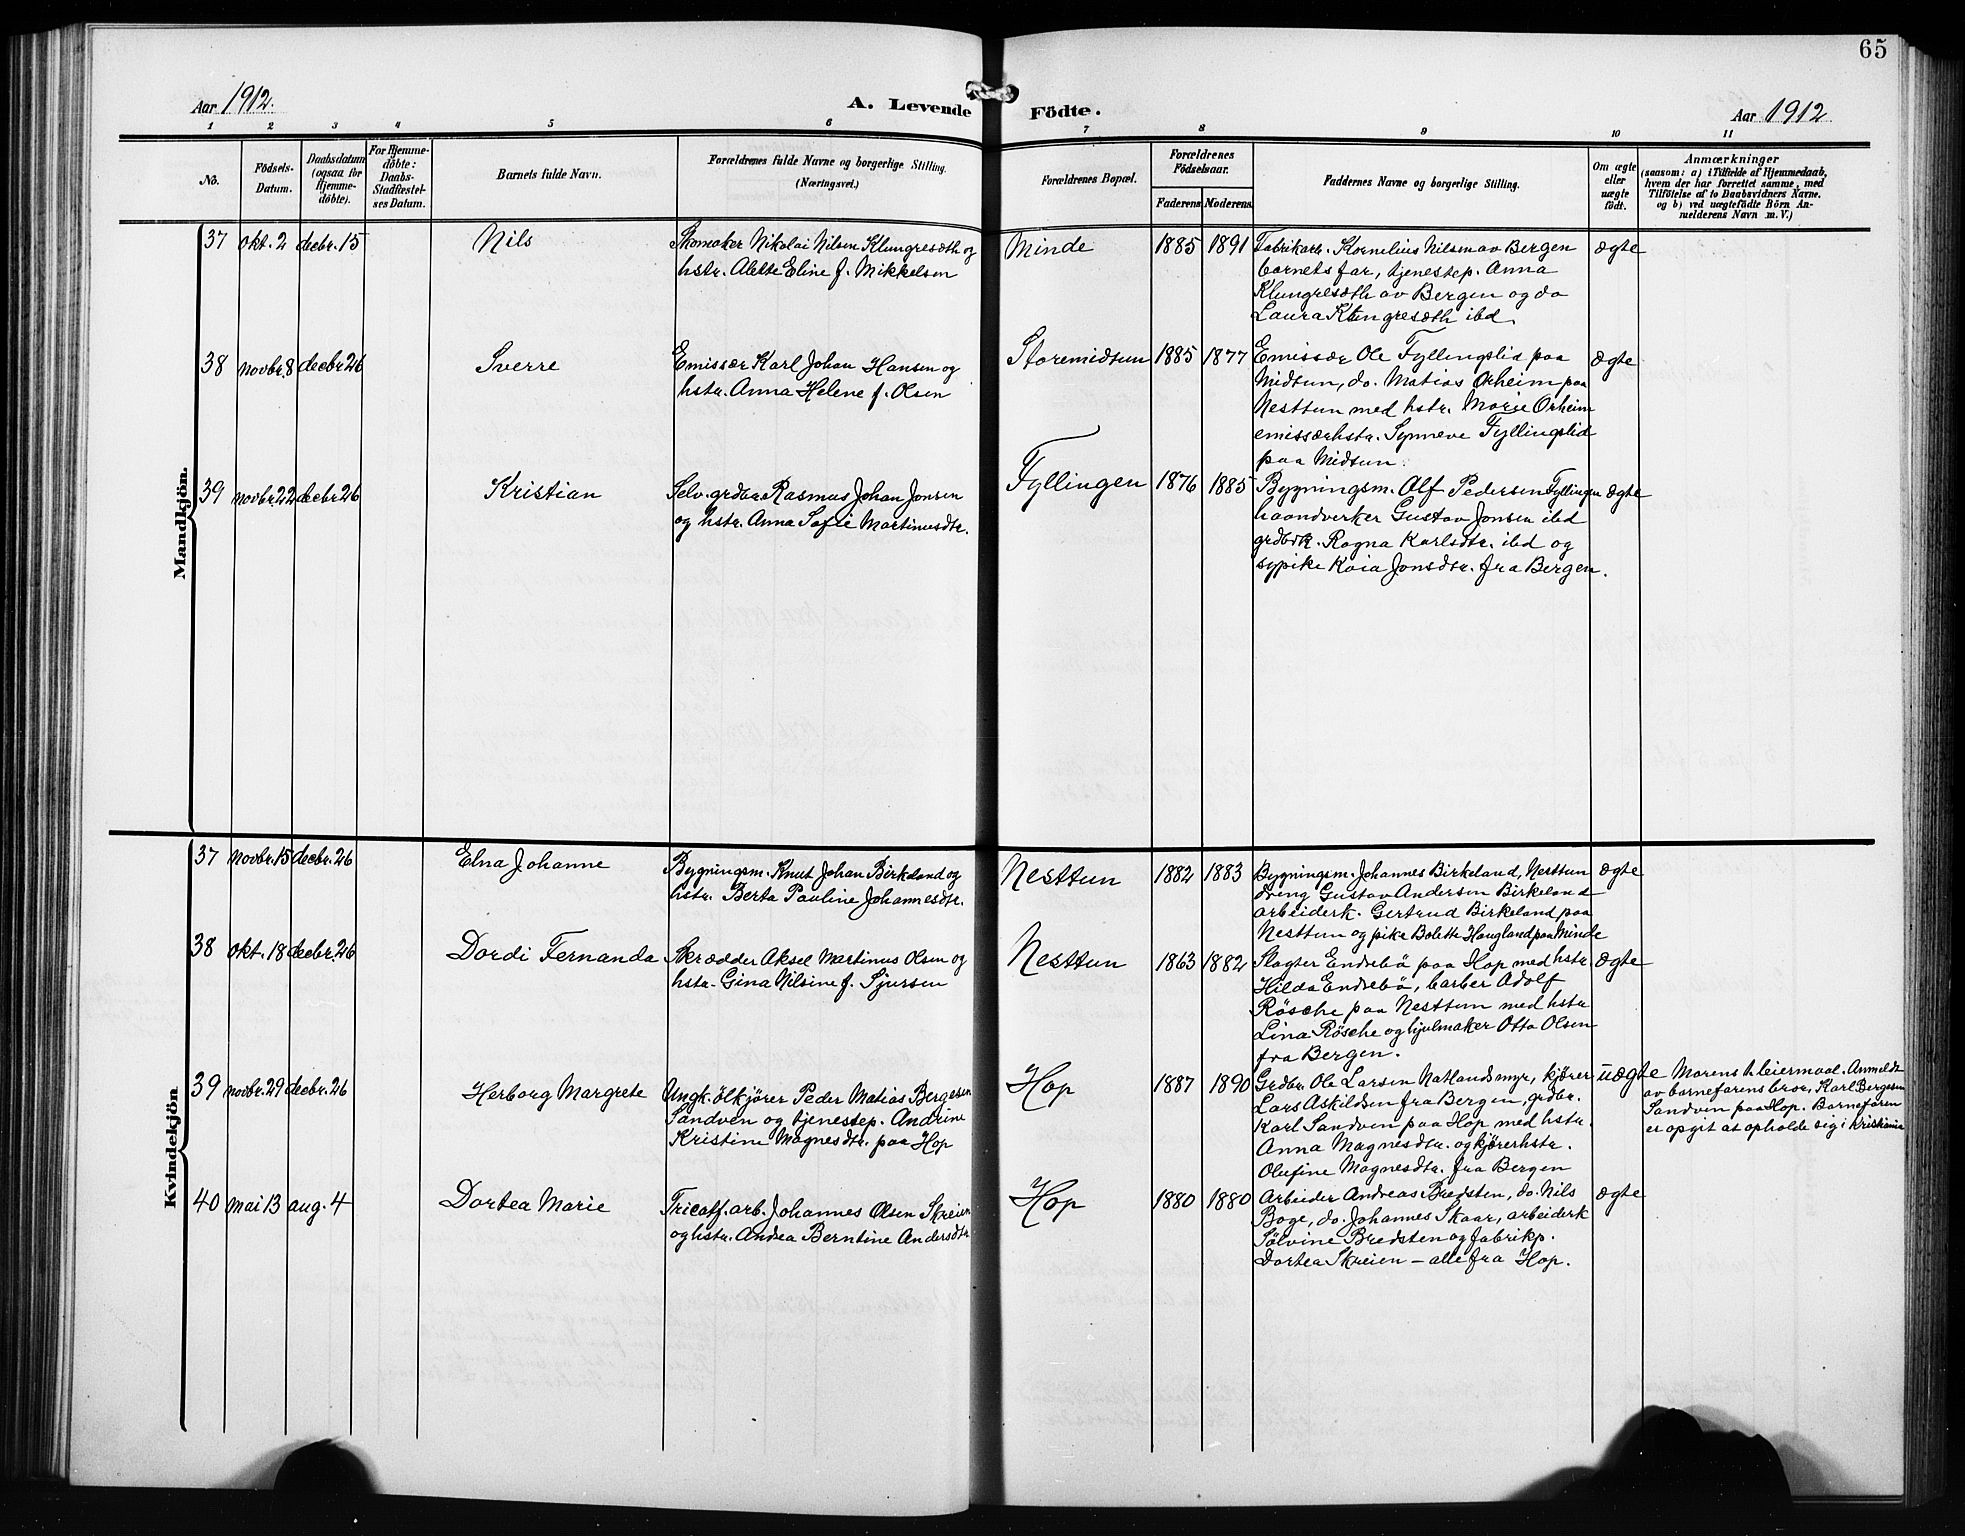 65
Aar 1912.
A. Levende Födte.
Aar 1912
1 2 3 4 5 6 7 8 9 10 11
No.
Födsels-
Datum.
Daabsdatum
(ogsaa for
Hjemme-
döbte).
For Hjemme-
döbte:
Daabs-
Stadfæstel-
ses Datum.
Barnets fulde Navn.
Forældrenes fulde Navne og borgerlige Stilling.
(Næringsvei.)
Forældrenes Bopæl.
Forældrenes
Födselsaar.
Faderens
Moderens
Faddernes Navne og borgerlige Stilling.
Om ægte
eller
uægte
födt.
Anmærkninger
(saasom: a) i Tilfælde af Hjemmedaab,
hvem der har forrettet samme, med
Tilföielse af to Daabsvidners Navne.
og b) ved uægtefödte Börn An-
melderens Navn m. V.)
Mandkjön.
37 okt. 2 decbr. 15
Nils
Skomaker Nikolai Nilsen Klungresæth og
hstr. Alette Eline f. Mikkelsen
Minde
1885 1891
Fabrikarb. Kornelius Nilsen av Bergen
barnets far, tjenestep. Anna
Klungresæth av Bergen og do
Laura Klungresæth ibd.
ægte
38 novbr. 8 decbr. 26
Sverre
Emissær Karl Johan Hansen og
hstr. Anna Helene f. Olsen
Storemidtun
1885 1877
Emissær Ole Fyllingslid paa
Midtun, do. Matias Orheim paa
Nesttun med hstr. Marie Orheim
emissærhstr. Synneve Fyllingslid
paa Midtun.
ægte
39 novbr. 22 decbr. 26
Kristian
Selv. grdbr. Rasmus Johan Jonsen
og hstr. Anna Sofie Martinusdtr.
Fyllingen
1876 1885
Bygningsm. Alf Pedersen Fyllingen
haandverker Gustav Jonsen ibd
grdbrk. Ragna Karlsdtr. ibd og
sypike Kaia Jonsdtr. fra Bergen.
ægte
Kvindekjön
37 novbr. 15 decbr. 26
Elna Johanne
Bygningsm. Knut Johan Birkeland og
hstr. Berta Pauline Johannesdtr.
Nesttun
1882 1883
Bygningsm. Johannes Birkeland, Nesttun
dreng Gustav Andersen Birkeland
arbeiderk. Gertrud Birkeland paa
Nesttun og pike Bolette Haugland paa Minde
ægte
38 okt. 18 decbr. 26
Dordi Fernanda
Skrædder Aksel Martinus Olsen og
hstr. Gina Nilsine f. Sjursen
Nesttun
1863 1882
Slagter Endrebö paa Hop med hstr.
Hilda Endrebö, barber Adolf
Rösche paa Nesttun med hstr
Lina Rösche og hjulmaker Otto Olsen
fra Bergen.
ægte
39 novbr. 29 decbr. 26
Herborg Margrete
Ungk. ölkjörer Peder Matias Bergesen
Sandven og tjenestep. Andrine
Kristine Magnesdtr. paa Hop
Hop
1887 1890
Grdbr. Ole Larsen Natlandsmyr, kjörer
Lars Askildsen fra Bergen, grdbr.
Karl Sandven paa Hop med hstr.
Anna Magnesdtr. og kjörerhstr.
Olufine Magnesdtr. fra Bergen
uægte
Morens 1. leiermaal. Anmeldt
av barnefarens bror, Karl Bergesen
Sandven paa Hop. Barnefaren
er opgit at opholde sig i Kristiania
40 mai 13 aug. 4
Dortea Marie
Tricotf. arb. Johannes Olsen Skreien
og hstr. Andea Berntine Andersdtr
Hop
1880 1880
Arbeider Andreas Bredsten, do. Nils
Boge, do. Johannes Skaar, arbeiderk
Sölvine Bredsten og fabrikp.
Dortea Skreien – alle fra Hop.
ægte